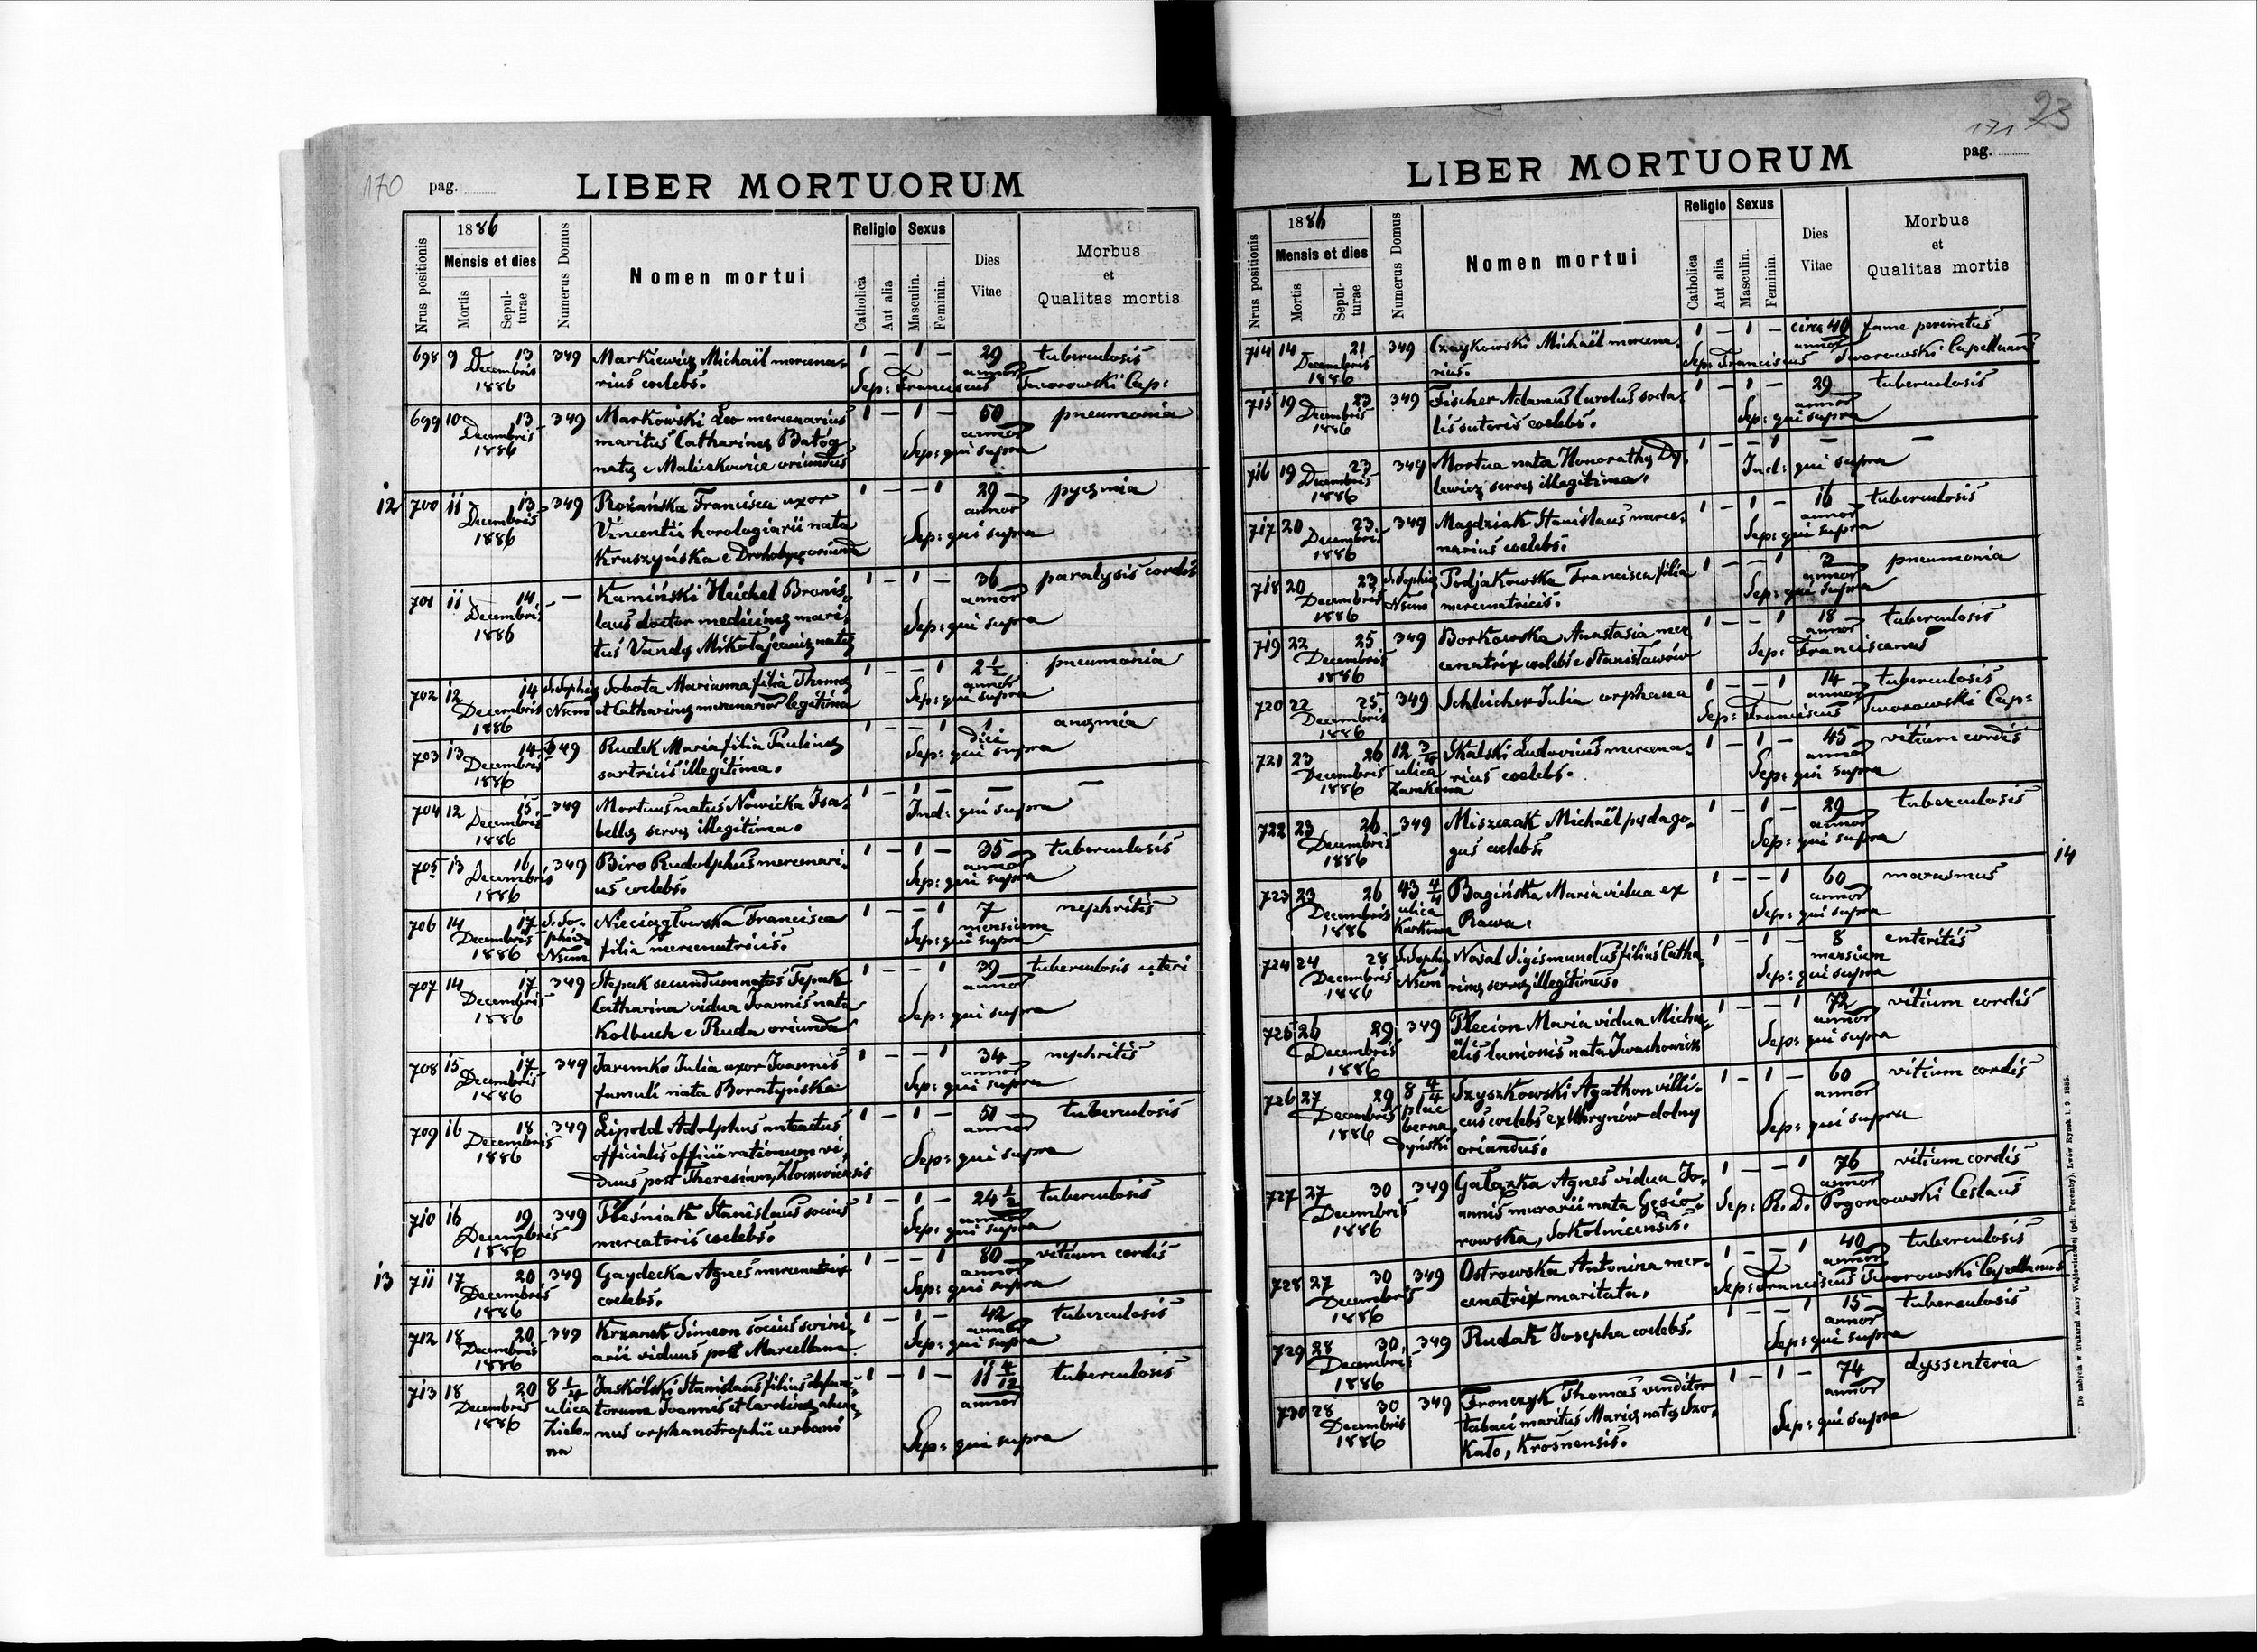 170 pag.
LIBER MORTUORUM
Nrus positionis
1886
Mensis et dies
Mortis
Sepulturae
Numerus Domus
Nomen mortui
Religio
Catholica
Aut alia
Sexus
Masculin.
Feminin.
Dies Vitae
Morbus et Qualitas mortis
698 9 13 349 Markiewicz Michaël mercena- 1 — 1 — 29 tuberculosis
Decembris rius coelebs. annor
1886 Sep: Franciscus Tworowski Cap:
699 10 13 349 Markowski Leo mercenarius 1 — 1 — 50 pneumonia
Decembris maritus Catharinę Batóg annor
1886 natę e Maliczkowice oriundus Sep: qui supra
12 700 11 13 349 Rożańska Francisca uxor 1 — — 1 29 pyęmia
Decembris Vincentii horologiarii nata annor
1886 Kruszyńska e Drohobycz oriunda Sep: qui supra
701 11 14 — Kamiński Heichel Bronis- 1 — 1 — 36 paralysis cordis
Decembris laus doctor medicinę mari- annor
1886 tus Vandy Mikołajewicz natę Sep: qui supra
702 12 14 S. Sophię Sobota Marianna filia Thomę 1 — — 1 2½ pneumonia
Decembris Nsem et Catharinę mercenarior legitima annor
1886 Sep: qui supra
703 13 14 349 Rudek Maria filia Paulinę 1 — — 1 1 anęmia
Decembris sartricis illegitima. diei
1886 Sep: qui supra
704 12 15 349 Mortuus natus Nowicka Isa- 1 — 1 — — —
Decembris bellę servę illegitima.
1886 Ind: qui supra
705 13 16 349 Biro Rudolphus mercenari- 1 — 1 — 35 tuberculosis
Decembris us coelebs. annor
1886 Sep: qui supra
706 14 17 S. So- Nieciągłowska Francisca 1 — — 1 7 nephritis
Decembris phię filia mercenatricis. mensium
1886 Nsem Sep: qui supra
707 14 17 349 Stepak secundum natos Tepak 1 — — 1 39 tuberculosis uteri
Decembris Catharina vidua Joannis nata annor
1886 Kolbuch e Ruda oriunda Sep: qui supra
708 15 17 349 Jaremko Julia uxor Joannis 1 — — 1 34 nephritis
Decembris famuli nata Boratyńska annor
1886 Sep: qui supra
709 16 18 349 Lipold Adolphus anteactus 1 — 1 — 51 tuberculosis
Decembris officialis officii rationum vi- annor
1886 duus post Theresiam, Zloczoviensis Sep: qui supra
710 16 19 349 Pleśniak Stanislaus socius 1 — 1 — 24½ tuberculosis
Decembris mercatoris coelebs. annor
1886 Sep: qui supra
13 711 17 20 349 Gaydecka Agnes mercenatrix 1 — — 1 80 vitium cordis
Decembris coelebs. annor
1886 Sep: qui supra
712 18 20 349 Krzanek Simeon socius scrini- 1 — 1 — 42 tuberculosis
Decembris arii viduus post Marcellam. annor
1886 Sep: qui supra
713 18 20 8 ¼ Jaskólski Stanislaus filius defunc- 1 — 1 — 11 4/12 tuberculosis
Decembris ulica torum Joannis et Carolinę alum- annor
1886 Zielo- nus orphanotrophii urbani
na Sep: qui supra
171 23
pag.
LIBER MORTUORUM
Nrus positionis
1886
Mensis et dies
Mortis
Sepulturae
Numerus Domus
Nomen mortui
Religio
Catholica
Aut alia
Sexus
Masculin.
Feminin.
Dies Vitae
Morbus et Qualitas mortis
714 14 21 349 Czaykowski Michaël mercena- 1 — 1 — circa 40 fame peremtus
Decembris rius. annor
1886 Sep: Franciscus Tworowski Capellanus
715 19 23 349 Fischer Adamus Carolus soda- 1 — 1 — 29 tuberculosis
Decembris lis sutoris coelebs. annor
1886 Sep: qui supra
716 19 23 349 Mortua nata Honorathę Dy- 1 — — 1 — —
Decembris lewicz servę illegitima.
1886 Ind: qui supra
717 20 23 349 Magdziak Stanislaus merce- 1 — 1 — 16 tuberculosis
Decembris narius coelebs. annor
1886 Sep: qui supra
718 20 23 S. Sophię Podjakowska Francisca filia 1 — — 1 2 pneumonia
Decembris Nsem mercenatricis. annor
1886 Sep: qui supra
719 22 25 349 Borkowska Anastasia mer- 1 — — 1 18 tuberculosis
Decembris cenatrix coelebs e Stanisławów annor
1886 Sep: Franciscanus
720 22 25 349 Schleicher Julia orphana 1 — — 1 14 tuberculosis
Decembris annor
1886 Sep: Franciscus Tworowski Cap:
721 23 26 12 ¾ Skalski Ludovicus mercena- 1 — 1 — 45 vitium cordis
Decembris ulica rius coelebs. annor
1886 Zamkowa Sep: qui supra
722 23 26 349 Miszczak Michaël pędago- 1 — 1 — 29 tuberculosis
Decembris gus coelebs. annor
1886 Sep: qui supra
14
723 23 26 43 4/4 Bagińska Maria vidua ex 1 — — 1 60 marasmus
Decembris ulica Rawa. annor
1886 Kurkowa Sep: qui supra
724 24 28 S. Sophię Nosal Sigismundus filius Catha- 1 — 1 — 8 enteritis
Decembris Nsem rinę servę illegitimus. mensium
1886 Sep: qui supra
725 26 29 349 Plecion Maria vidua Micha- 1 — — 1 72 vitium cordis
Decembris ëlis lanionis nata Iwachowicz annor
1886 Sep: qui supra
726 27 29 8 4/4 Szyszkowski Agathon villi- 1 — 1 — 60 vitium cordis
Decembris plac cus coelebs ex Uhrynów dolny annor
1886 berna- oriundus.
dyński Sep: qui supra
727 27 30 349 Gałązka Agnes vidua Jo- 1 — — 1 76 vitium cordis
Decembris annis murarii nata Gęsio- annor
1886 rowska, Sokolnicensis. Sep: R. D. Pogonowski Ceslaus
728 27 30 349 Ostrowska Antonina mer- 1 — — 1 40 tuberculosis
Decembris cenatrix maritata. annor
1886 Sep: Franciscus Tworowski Capellanus
729 28 30 349 Rudak Josepha coelebs. 1 — — 1 15 tuberculosis
Decembris annor
1886 Sep: qui supra
730 28 30 349 Fronczyk Thomas venditor 1 — 1 — 74 dyssenteria
Decembris tabaci maritus Marię natę Szo- annor
1886 kało, Krosnensis. Sep: qui supra